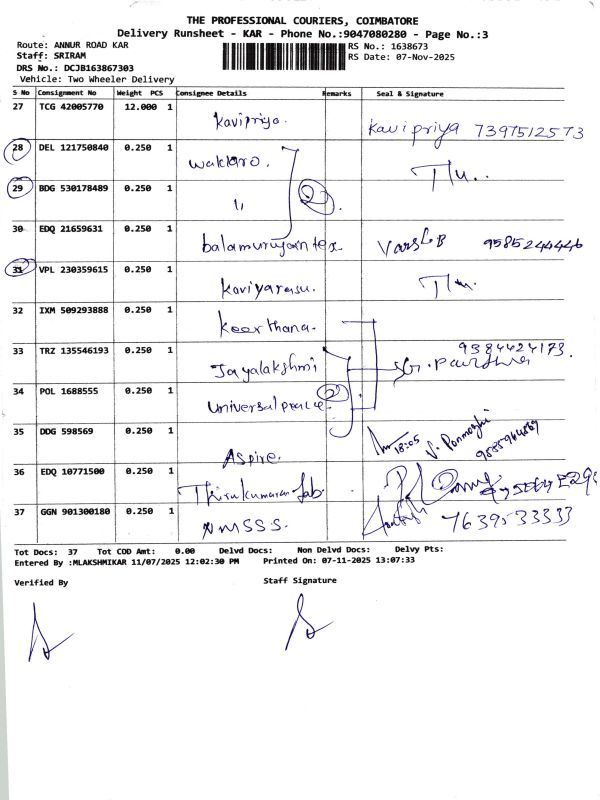 THE PROFESSIONAL COURIERS, COIMBATORE
Delivery Runsheet - KAR - Phone No.:9047080280 - Page No.:3
Route: ANNUR ROAD KAR RS No.: 1638673
Staff: SRIRAM RS Date: 07-Nov-2025
DRS No.: DCJB163867303
Vehicle: Two Wheeler Delivery
S No Consignment No Weight PCS Consignee Details Remarks Seal & Signature
27 TCG 42005770 12.000 1 Kavipriya. Kavipriya 7397512573
28 DEL 121750840 0.250 1 wakaro.
29 BDG 530178489 0.250 1 " 2
30 EDQ 21659631 0.250 1 balamurugan tex. 9585244446
31 VPL 230359615 0.250 1 Kaviyarasu.
32 IXM 509293888 0.250 1 Keerthana.
33 TRZ 135546193 0.250 1 Jayalakshmi 9384424173.
34 POL 1688555 0.250 1 universal 2
35 DDG 598569 0.250 1 Aspire. 18:05
36 EDQ 10771500 0.250 1 Thirukumaran Fab.
37 GGN 901300180 0.250 1 NMSSS. 7639533333
Tot Docs: 37 Tot COD Amt: 0.00 Delvd Docs: Non Delvd Docs: Delvy Pts:
Entered By :MLAKSHMIKAR 11/07/2025 12:02:30 PM Printed On: 07-11-2025 13:07:33
Verified By Staff Signature